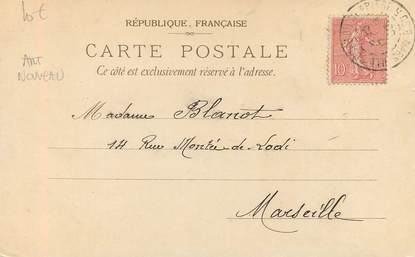 10 €
ART
NOUVEAU
RÉPUBLIQUE FRANÇAISE
CARTE POSTALE
Ce côté est exclusivement réservé à l'adresse.
10
Madame Blanot
14 Rue Montée-de-Lodi
Marseille